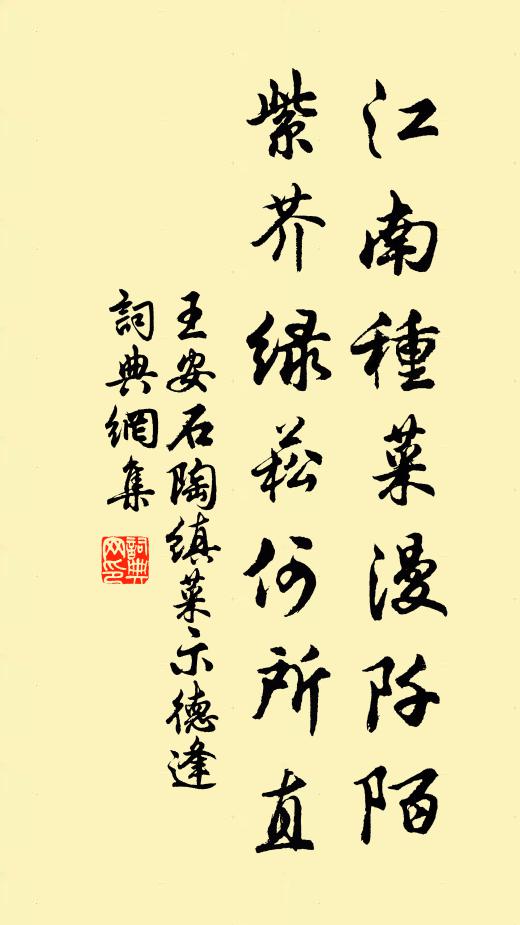 江南種菜漫阡陌
紫芥緑菘何所直
王安石陶縝菜示德逢
詞典網集
詞典網印